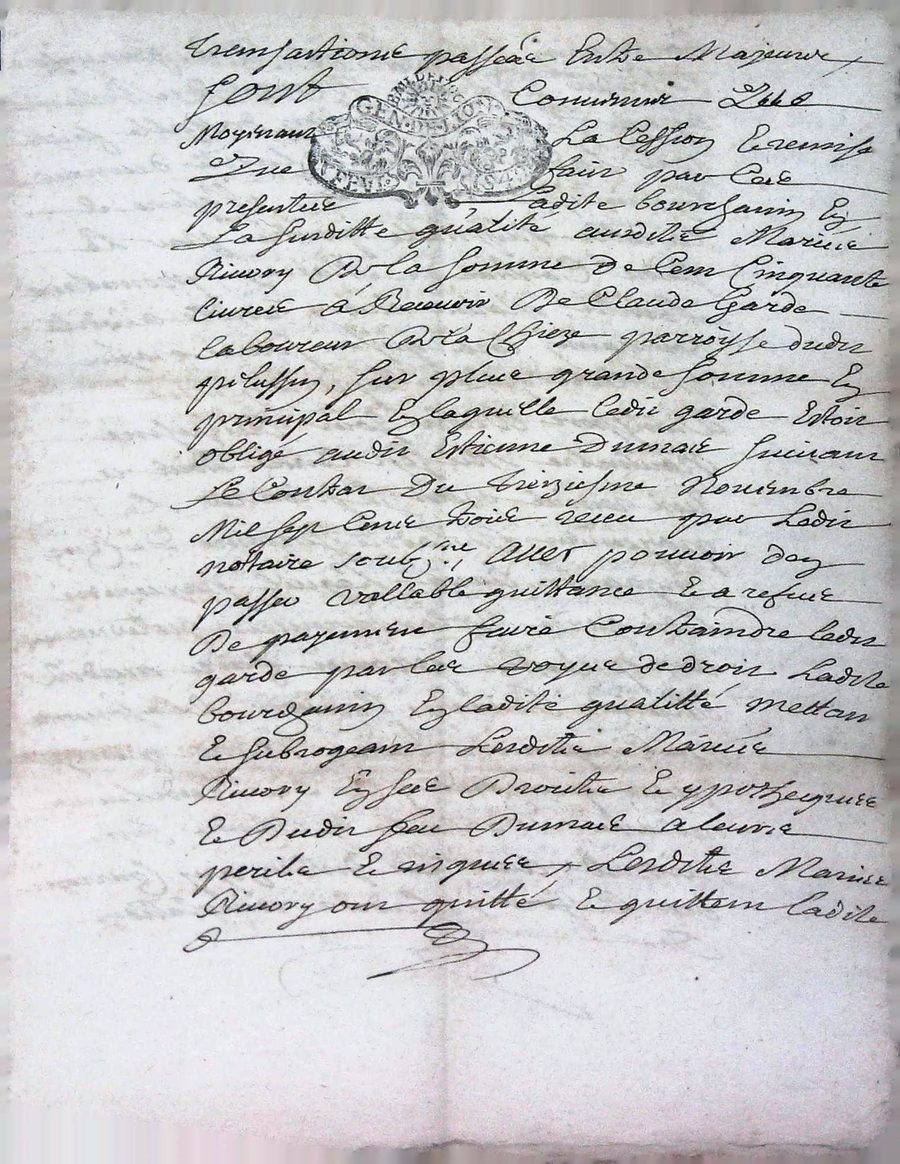 transactions passées Entre Majeurs
sont Convenus
Moyenant La Cession Et remise
Que fait par Ces
presentes Ladite bourdianin En
La susditte qualité ausdits Mariés
Rivory De la somme De Cent Cinquante
livres à Recevoir De Claude Garde
laboureur De la Chieze parroisse dudit
pilussin, sur plus grande somme En
principal En laquelle ledit garde Estoit
obligé audit Estienne Dumas suivant
Le Contrat Du treiziesme Novembre
Mil sept Cents trois receu par Ledit
notaire soubsné, avec pouvoir den
passer vallable quittance Et a refus
De payement faire Contraindre ledit
garde par les voyes de droit, Ladite
En ladite qualitté mettant
Et subrogeant Lesdits Mariés
Rivory En ses Droits Et ypotheques
Et Dudit feu Dumas a leurs
perils Et risques, Lesdits Mariés
Rivory ont quitté Et quittent ladite